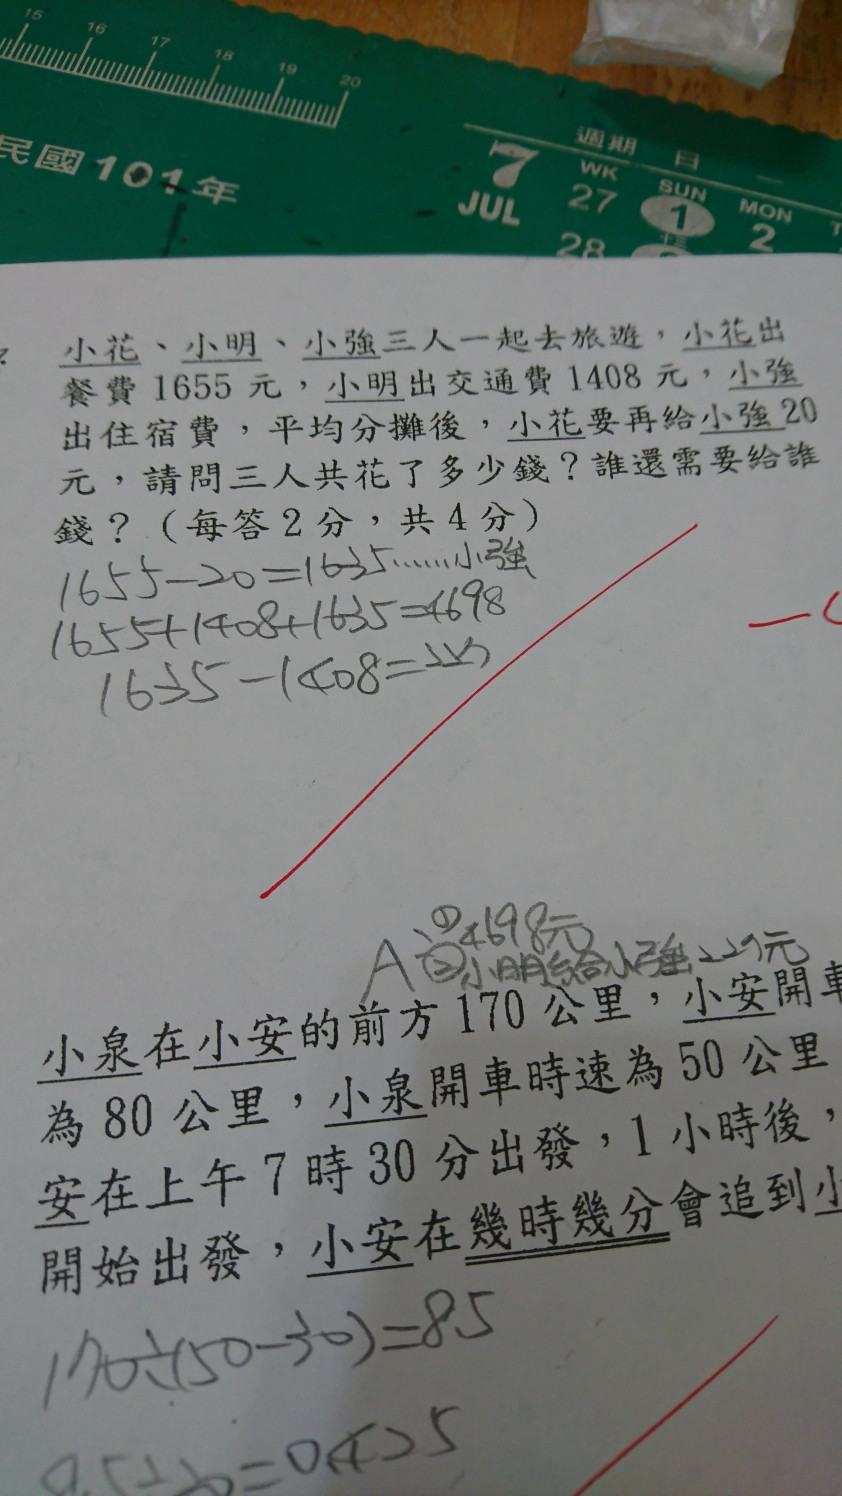 15 16 17 18 19 20
民國101年
週期 日 一
7 WK SUN MON
JUL 27 1 2
28
小花、小明、小強三人一起去旅遊，小花出
餐費1655元，小明出交通費1408元，小強
出住宿費，平均分攤後，小花要再給小強20
元，請問三人共花了多少錢？誰還需要給誰
錢？（每答2分，共4分）
1655-20=1635......小強
1655+1408+1635=4698
1635-1408=227
A：①4698元
②小明給小強227元
小泉在小安的前方170公里，小安開車
為80公里，小泉開車時速為50公里
安在上午7時30分出發，1小時後，
開始出發，小安在幾時幾分會追到小
170÷(50-30)=8.5
=0.425